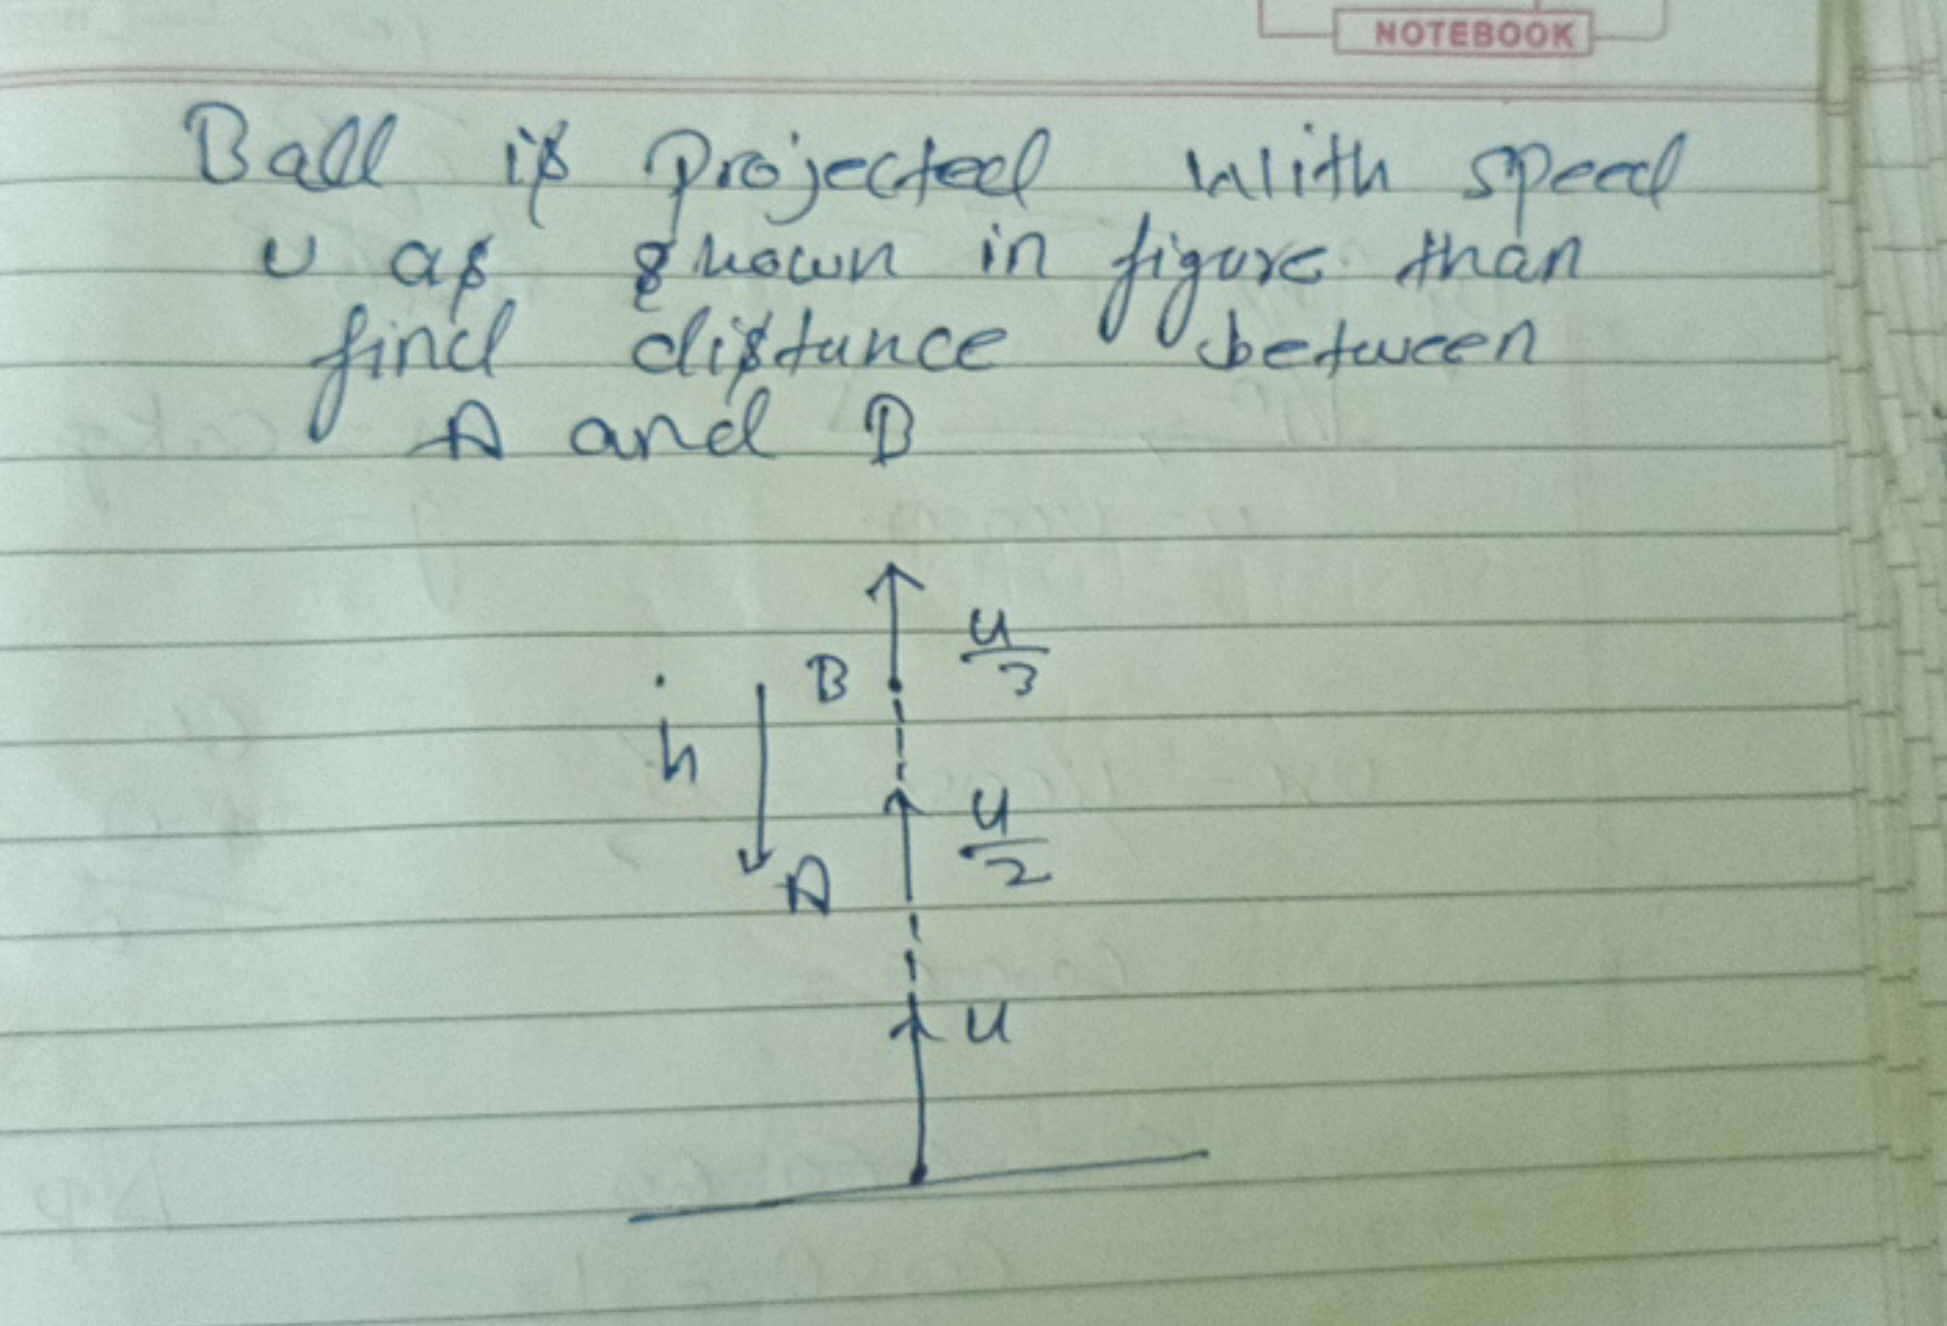 NOTEBOOK
Ball is projected with speed
u as shown in figure than
find distance between
A and B
u/3
B
h
u/2
A
u